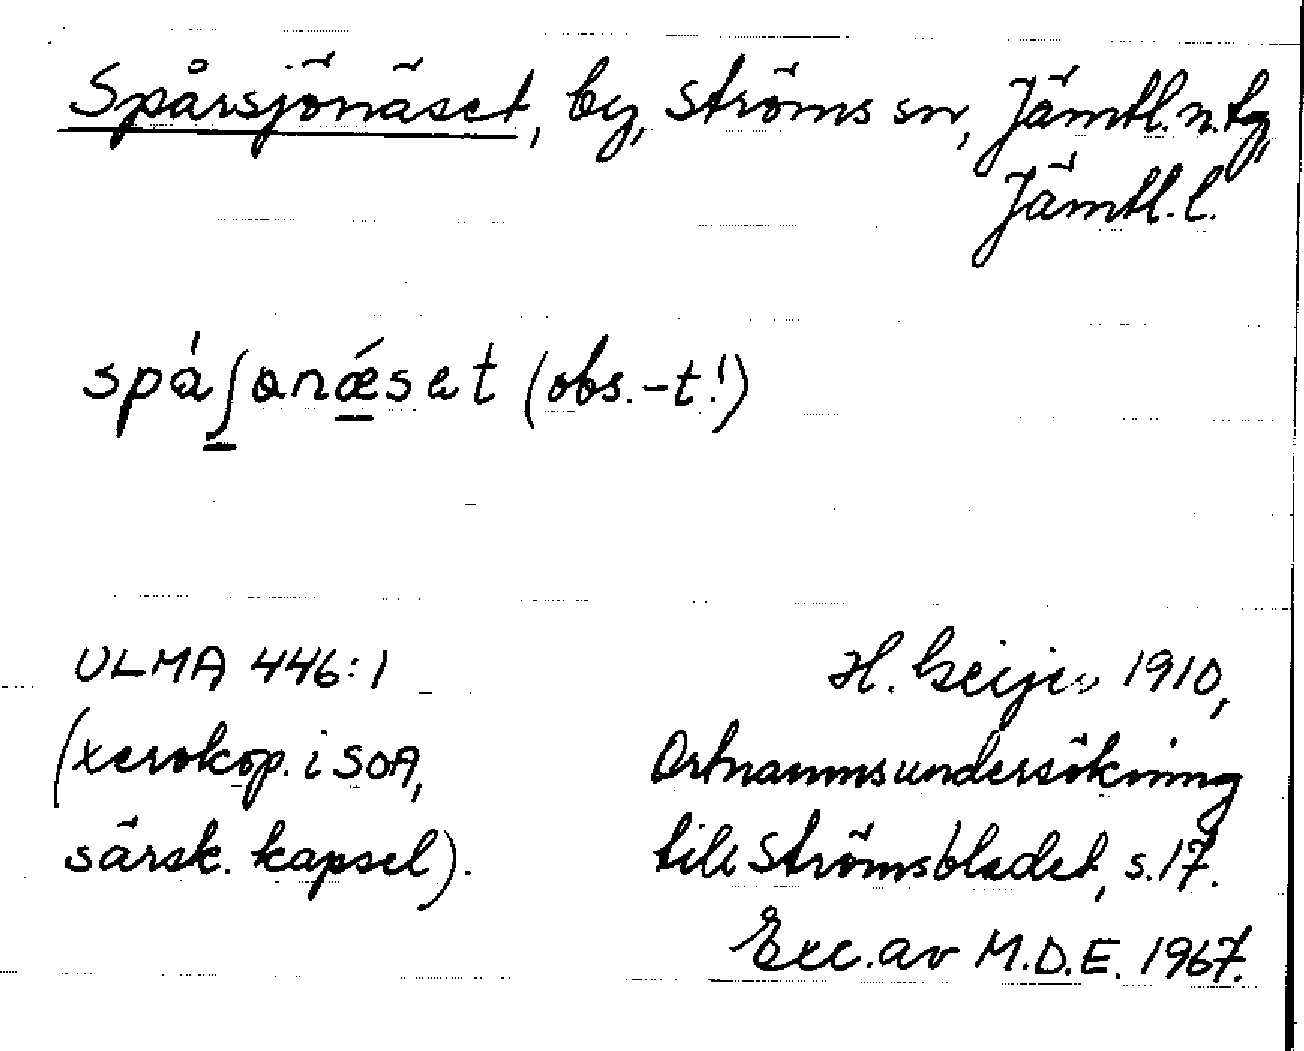 Spårsjönäset, by, Ströms sn, Jämtl.n.tg,
Jämtl.l.
spá̊ʃanǽset (obs. -t!)
ULMA 446:1
(xerokop. i SOA,
särsk. kapsel).
H. Geijer 1910,
Ortnamnsundersökning
till Strömsbladet, s.17.
Exc. av M.D.E. 1967.